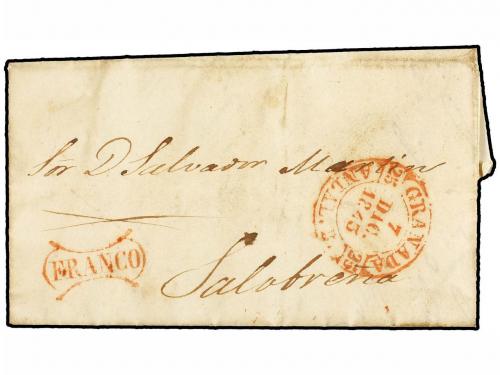 Sor D. Salvador Martin
GRANADA
7
DIC
1845
FRANCO
Salobreña